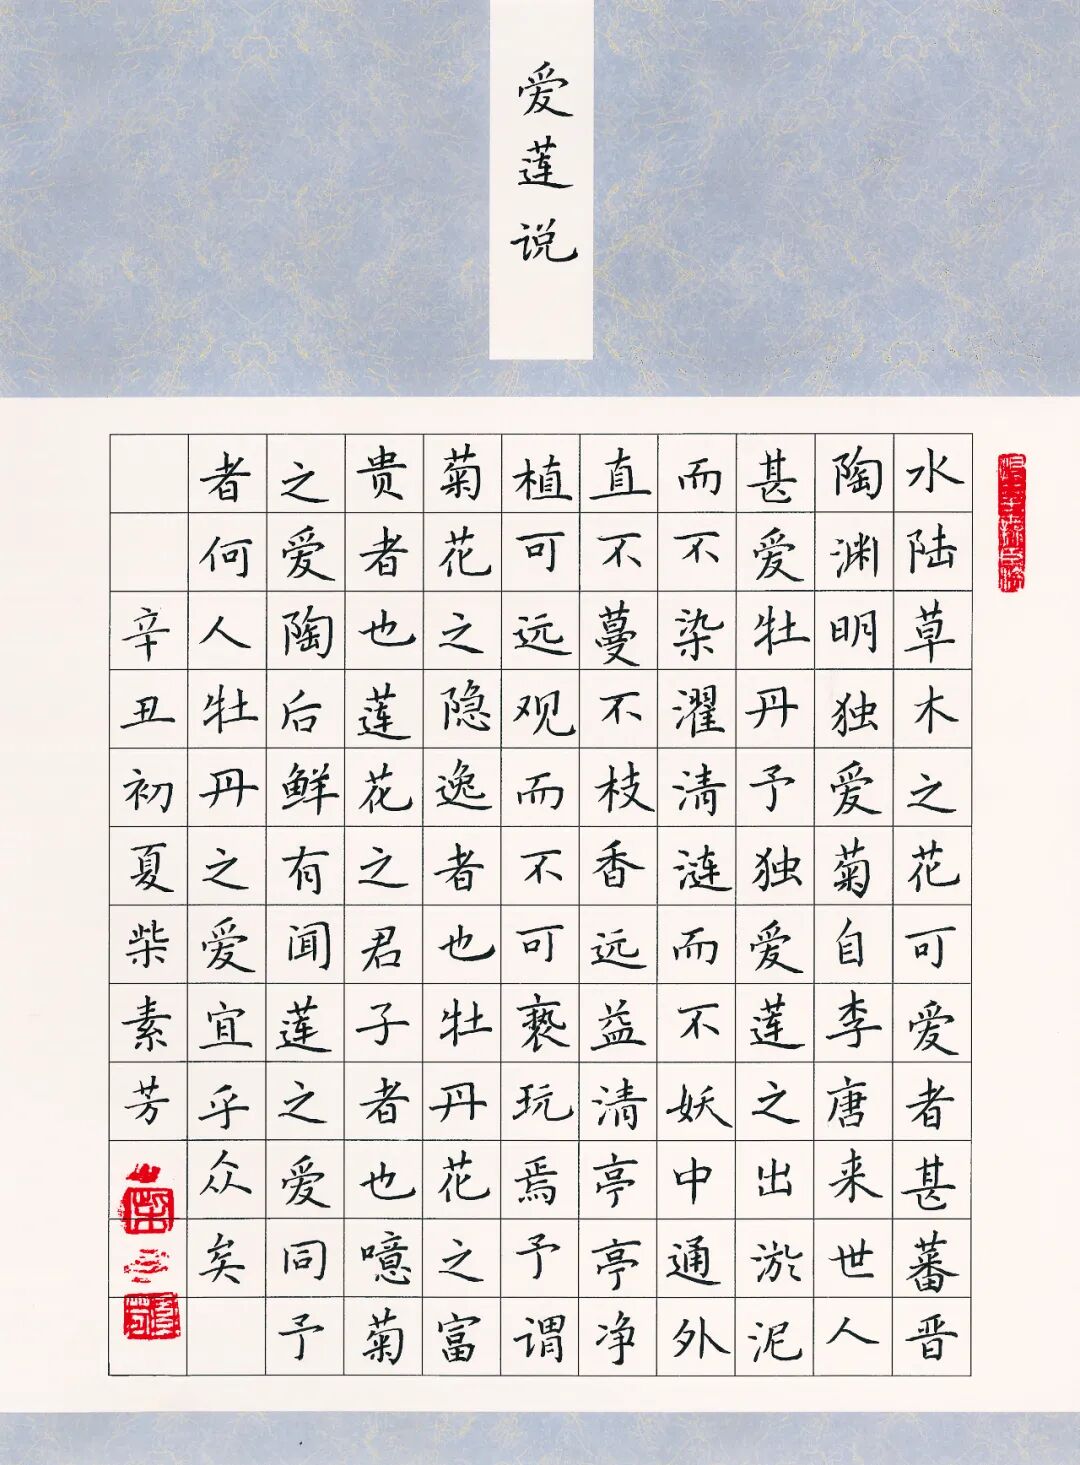 爱莲说
水陆草木之花可爱者甚蕃晋
陶渊明独爱菊自李唐来世人
甚爱牡丹予独爱莲之出淤泥
而不染濯清涟而不妖中通外
直不蔓不枝香远益清亭亭净
植可远观而不可亵玩焉予谓
菊花之隐逸者也牡丹花之富
贵者也莲花之君子者也噫菊
之爱陶后鲜有闻莲之爱同予
者何人牡丹之爱宜乎众矣
辛丑初夏柴素芳